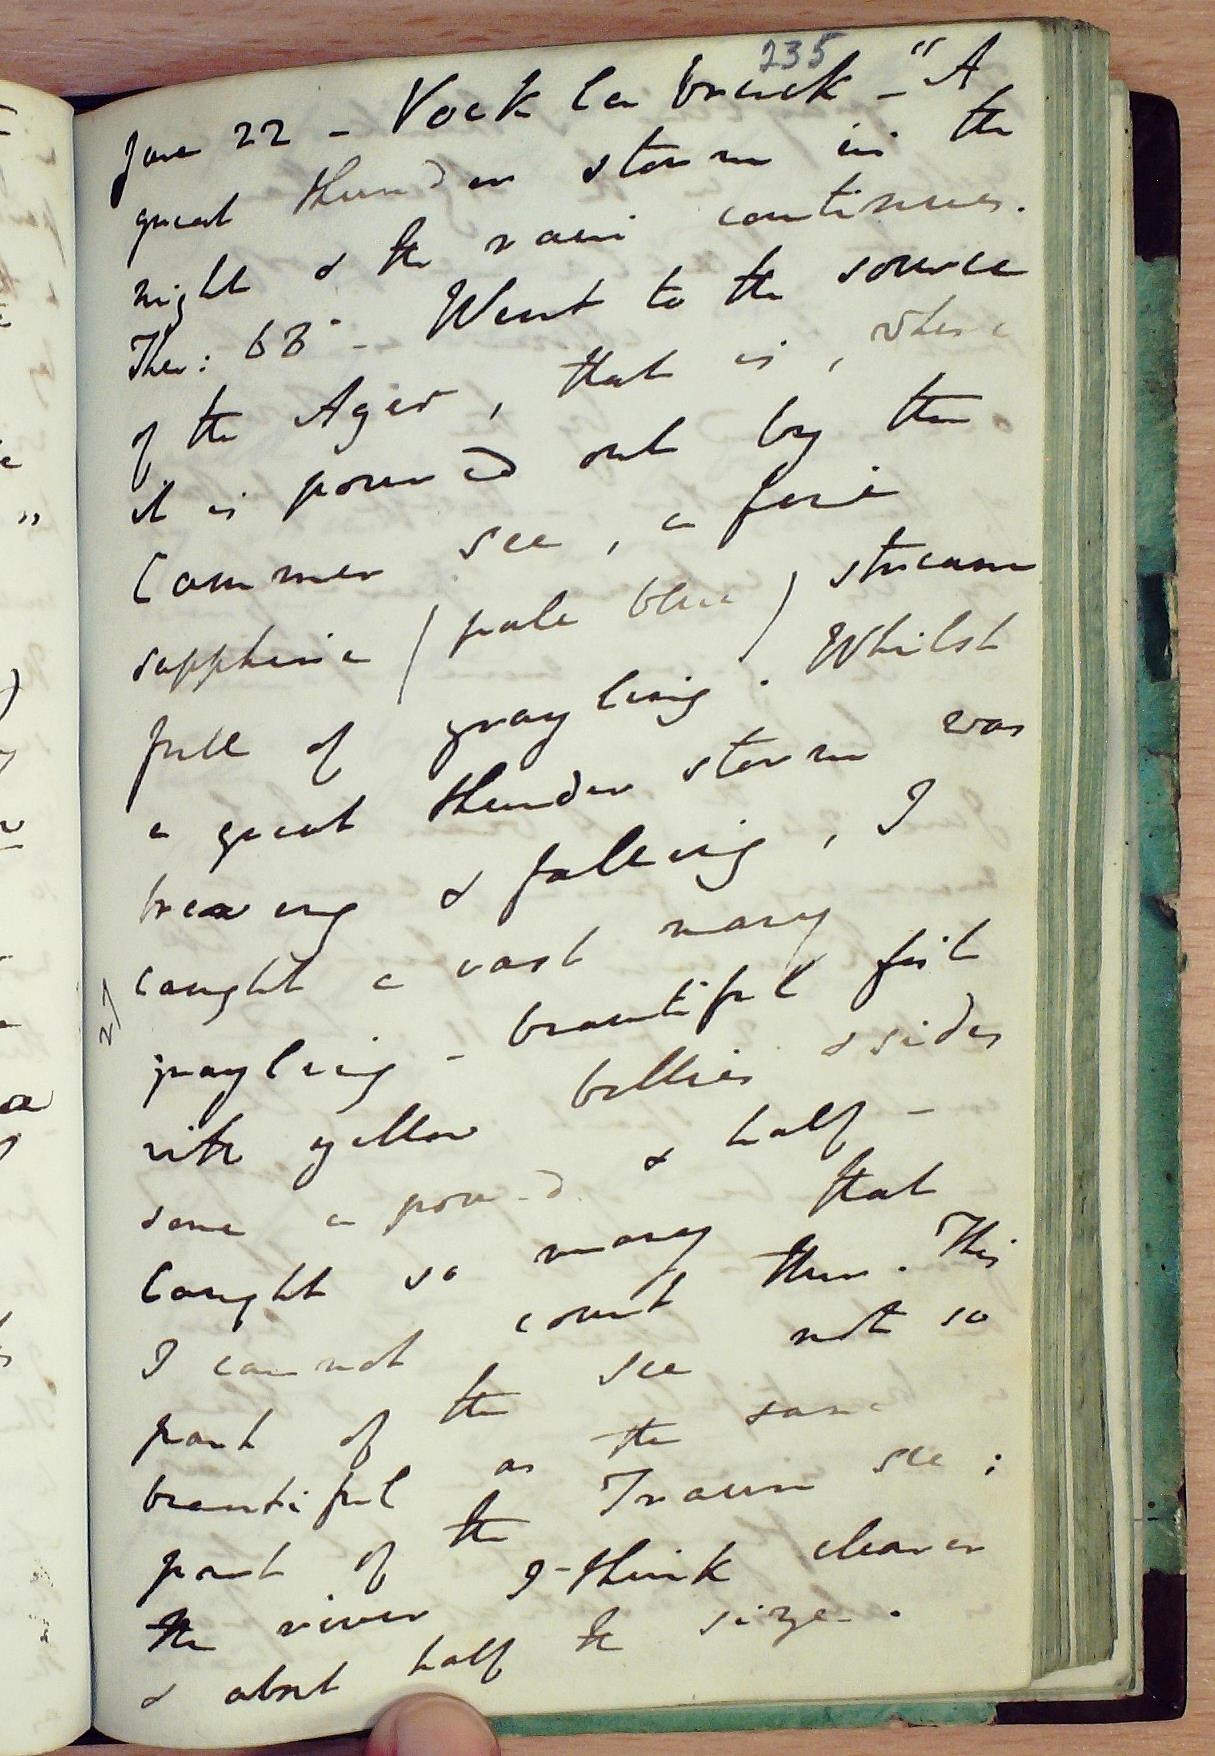 235
June 22 - Vock la bruck - "A
great thunder storm in the
night & the rain continues.
Ther: 63° - Went to the source
of the Ager, that is, where
it is poured out by the
Cammer see, a fine
sapphirie (pale blue) stream
full of grayling. Whilst
a great thunder storm was
brewing & falling, I
caught a vast many
grayling - beautiful fish
with yellow bellies & sides
some a pound & half -
Caught so many that
I cannot count them. This
part of the see not so
beautiful as the same
part of the Traun see;
the river I think clearer
& about half the size.